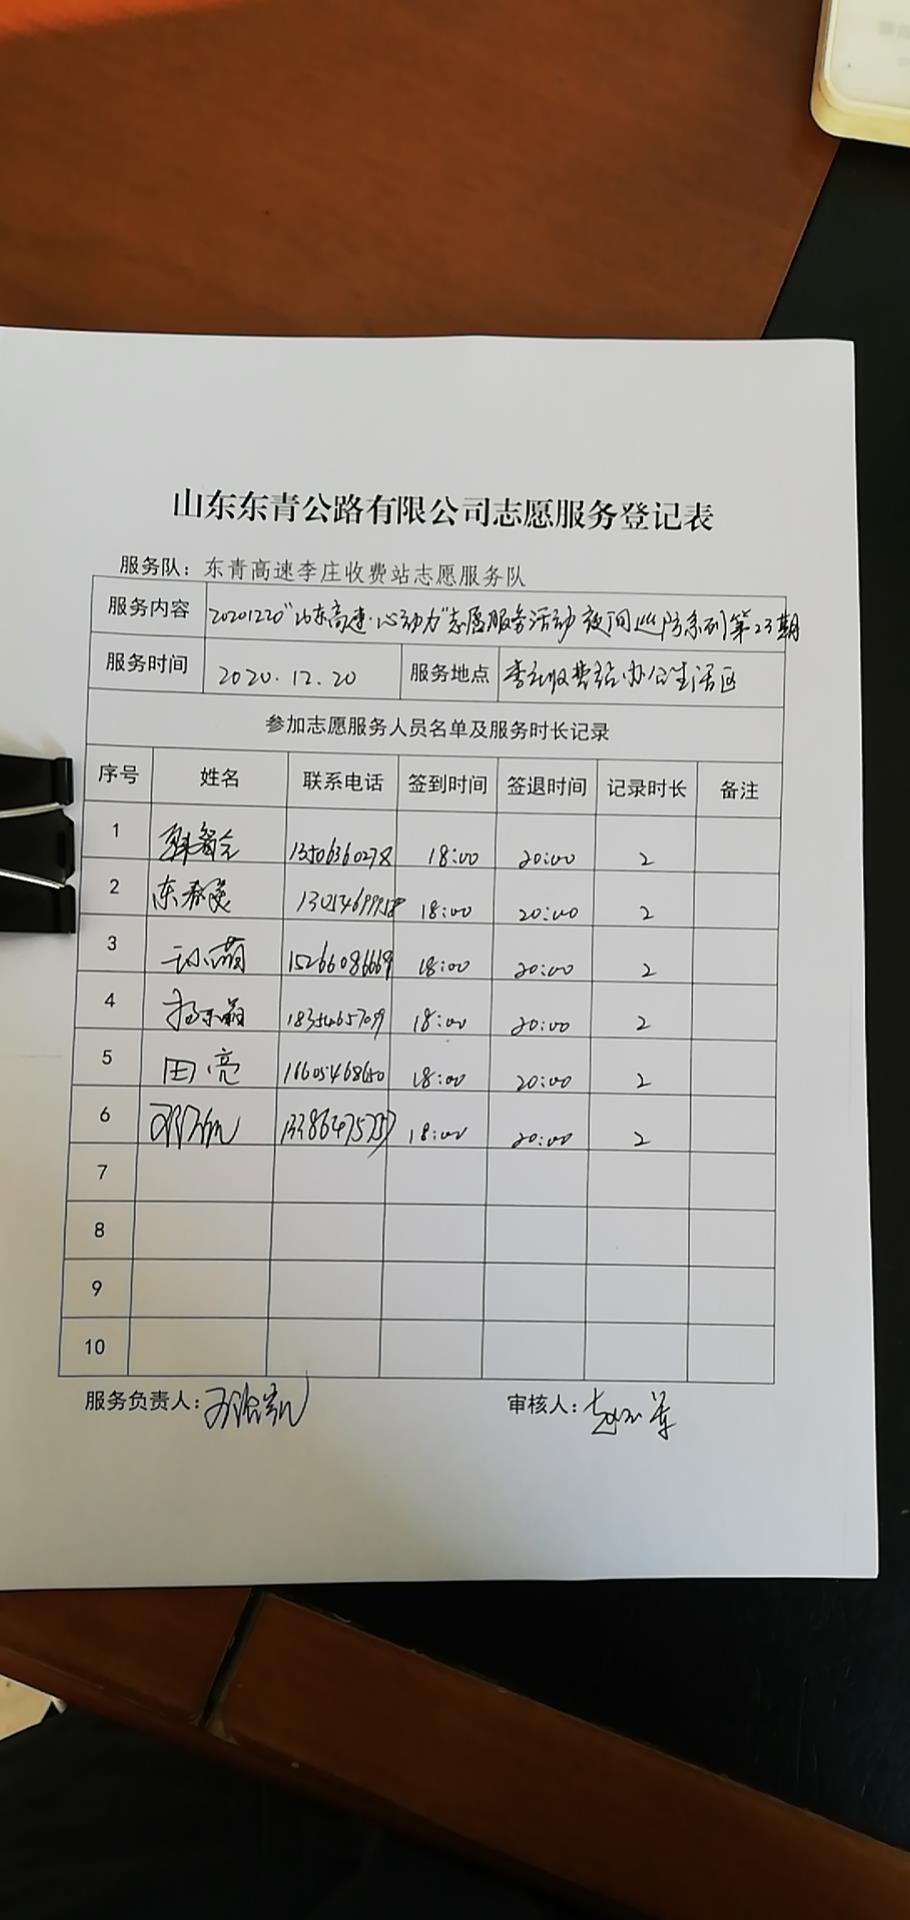 山东东青公路有限公司志愿服务登记表
服务队：东青高速李庄收费站志愿服务队
服务内容 20201220"山东高速·心动力"志愿服务活动 夜间巡防系列第23期
服务时间 2020.12.20 服务地点 李庄收费站办公生活区
参加志愿服务人员名单及服务时长记录
序号 姓名 联系电话 签到时间 签退时间 记录时长 备注
1 13506360278 18:00 20:00 2
2 18:00 20:00 2
3 孙萌 15266086669 18:00 20:00 2
4 18354657099 18:00 20:00 2
5 田亮 16605468650 18:00 20:00 2
6 18:00 20:00 2
7
8
9
10
服务负责人： 审核人：